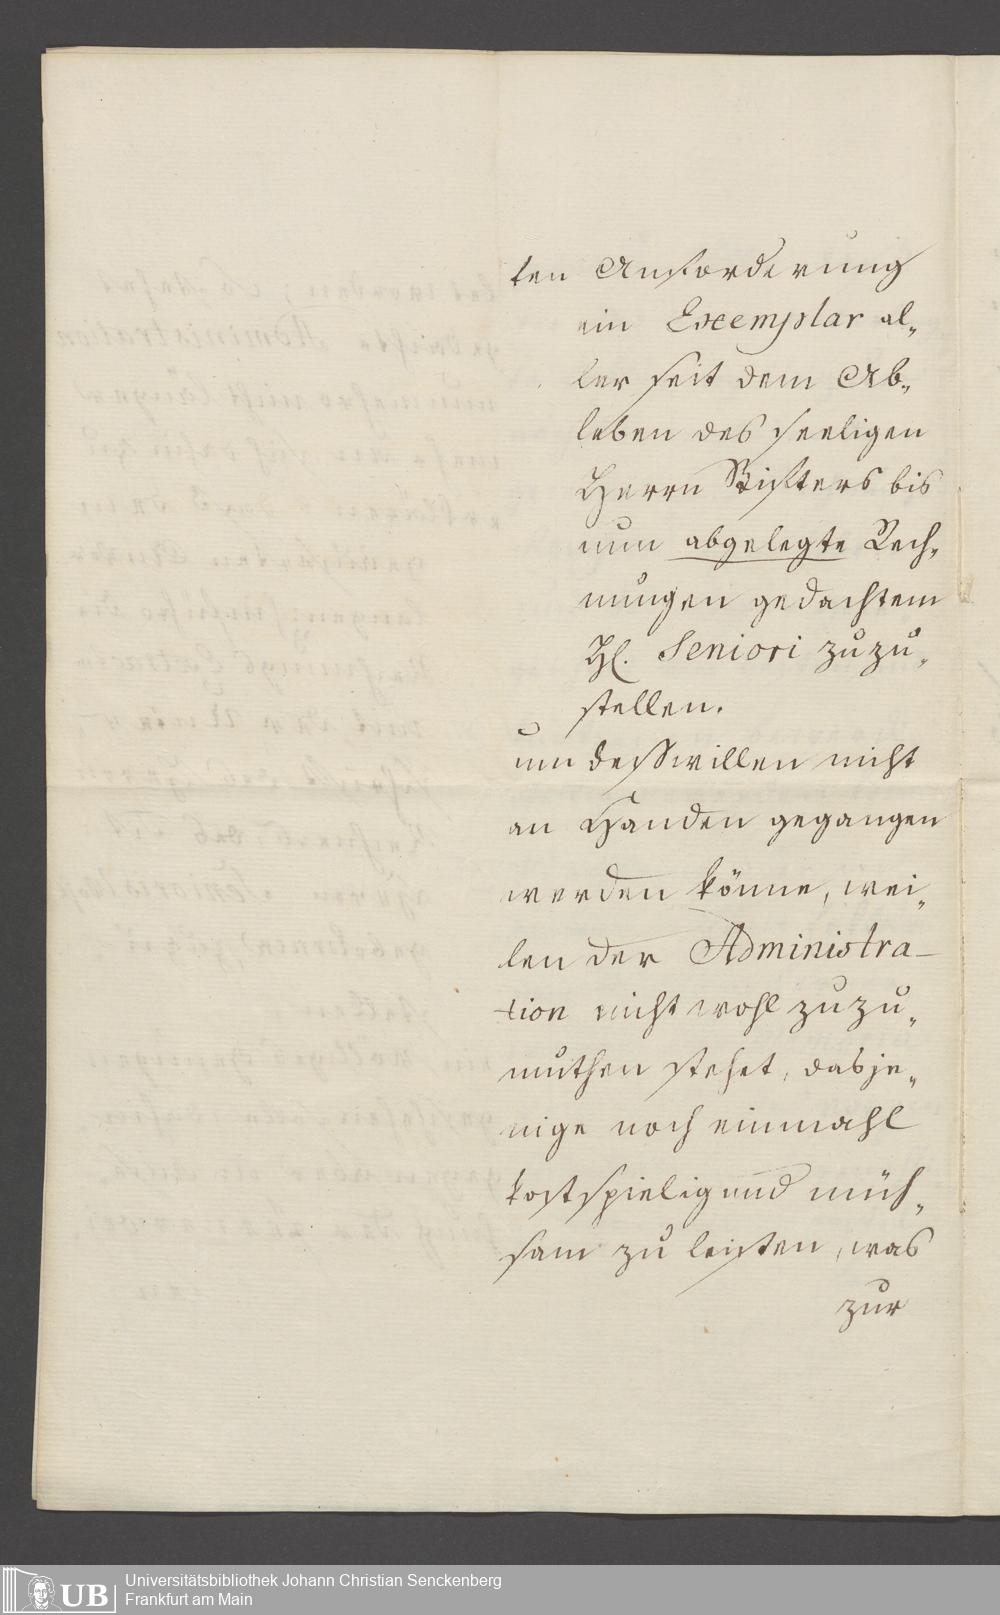 ten Anforderung
ein Exemplar al„
ler seit dem Ab„
leben des seeligen
Herrn Stifters bis
nun abgelegte Rech„
nungen gedachtem
H. Seniori zuzu„
stellen.
um desswillen nicht
an Handen gegangen
werden könne, wei„
len der Administra-
tion nicht wohl zuzu„
muthen stehet, dasje„
nige noch einmahl
kostspielig und müh„
sam zu leisten, was
zur
UB
Universitätsbibliothek Johann Christian Senckenberg
Frankfurt am Main